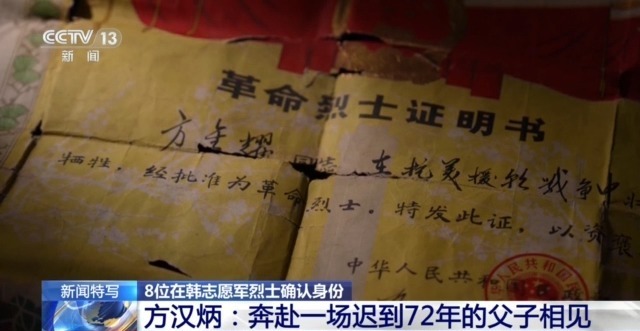 CCTV 13
新闻
革命烈士证明书
方金耀同志 在抗美援朝战争中壮
牺牲,经批准为革命烈士。特发此证,以资褒
中华人民共
民共和国
新闻特写
8位在韩志愿军烈士确认身份
方汉炳:奔赴一场迟到72年的父子相见